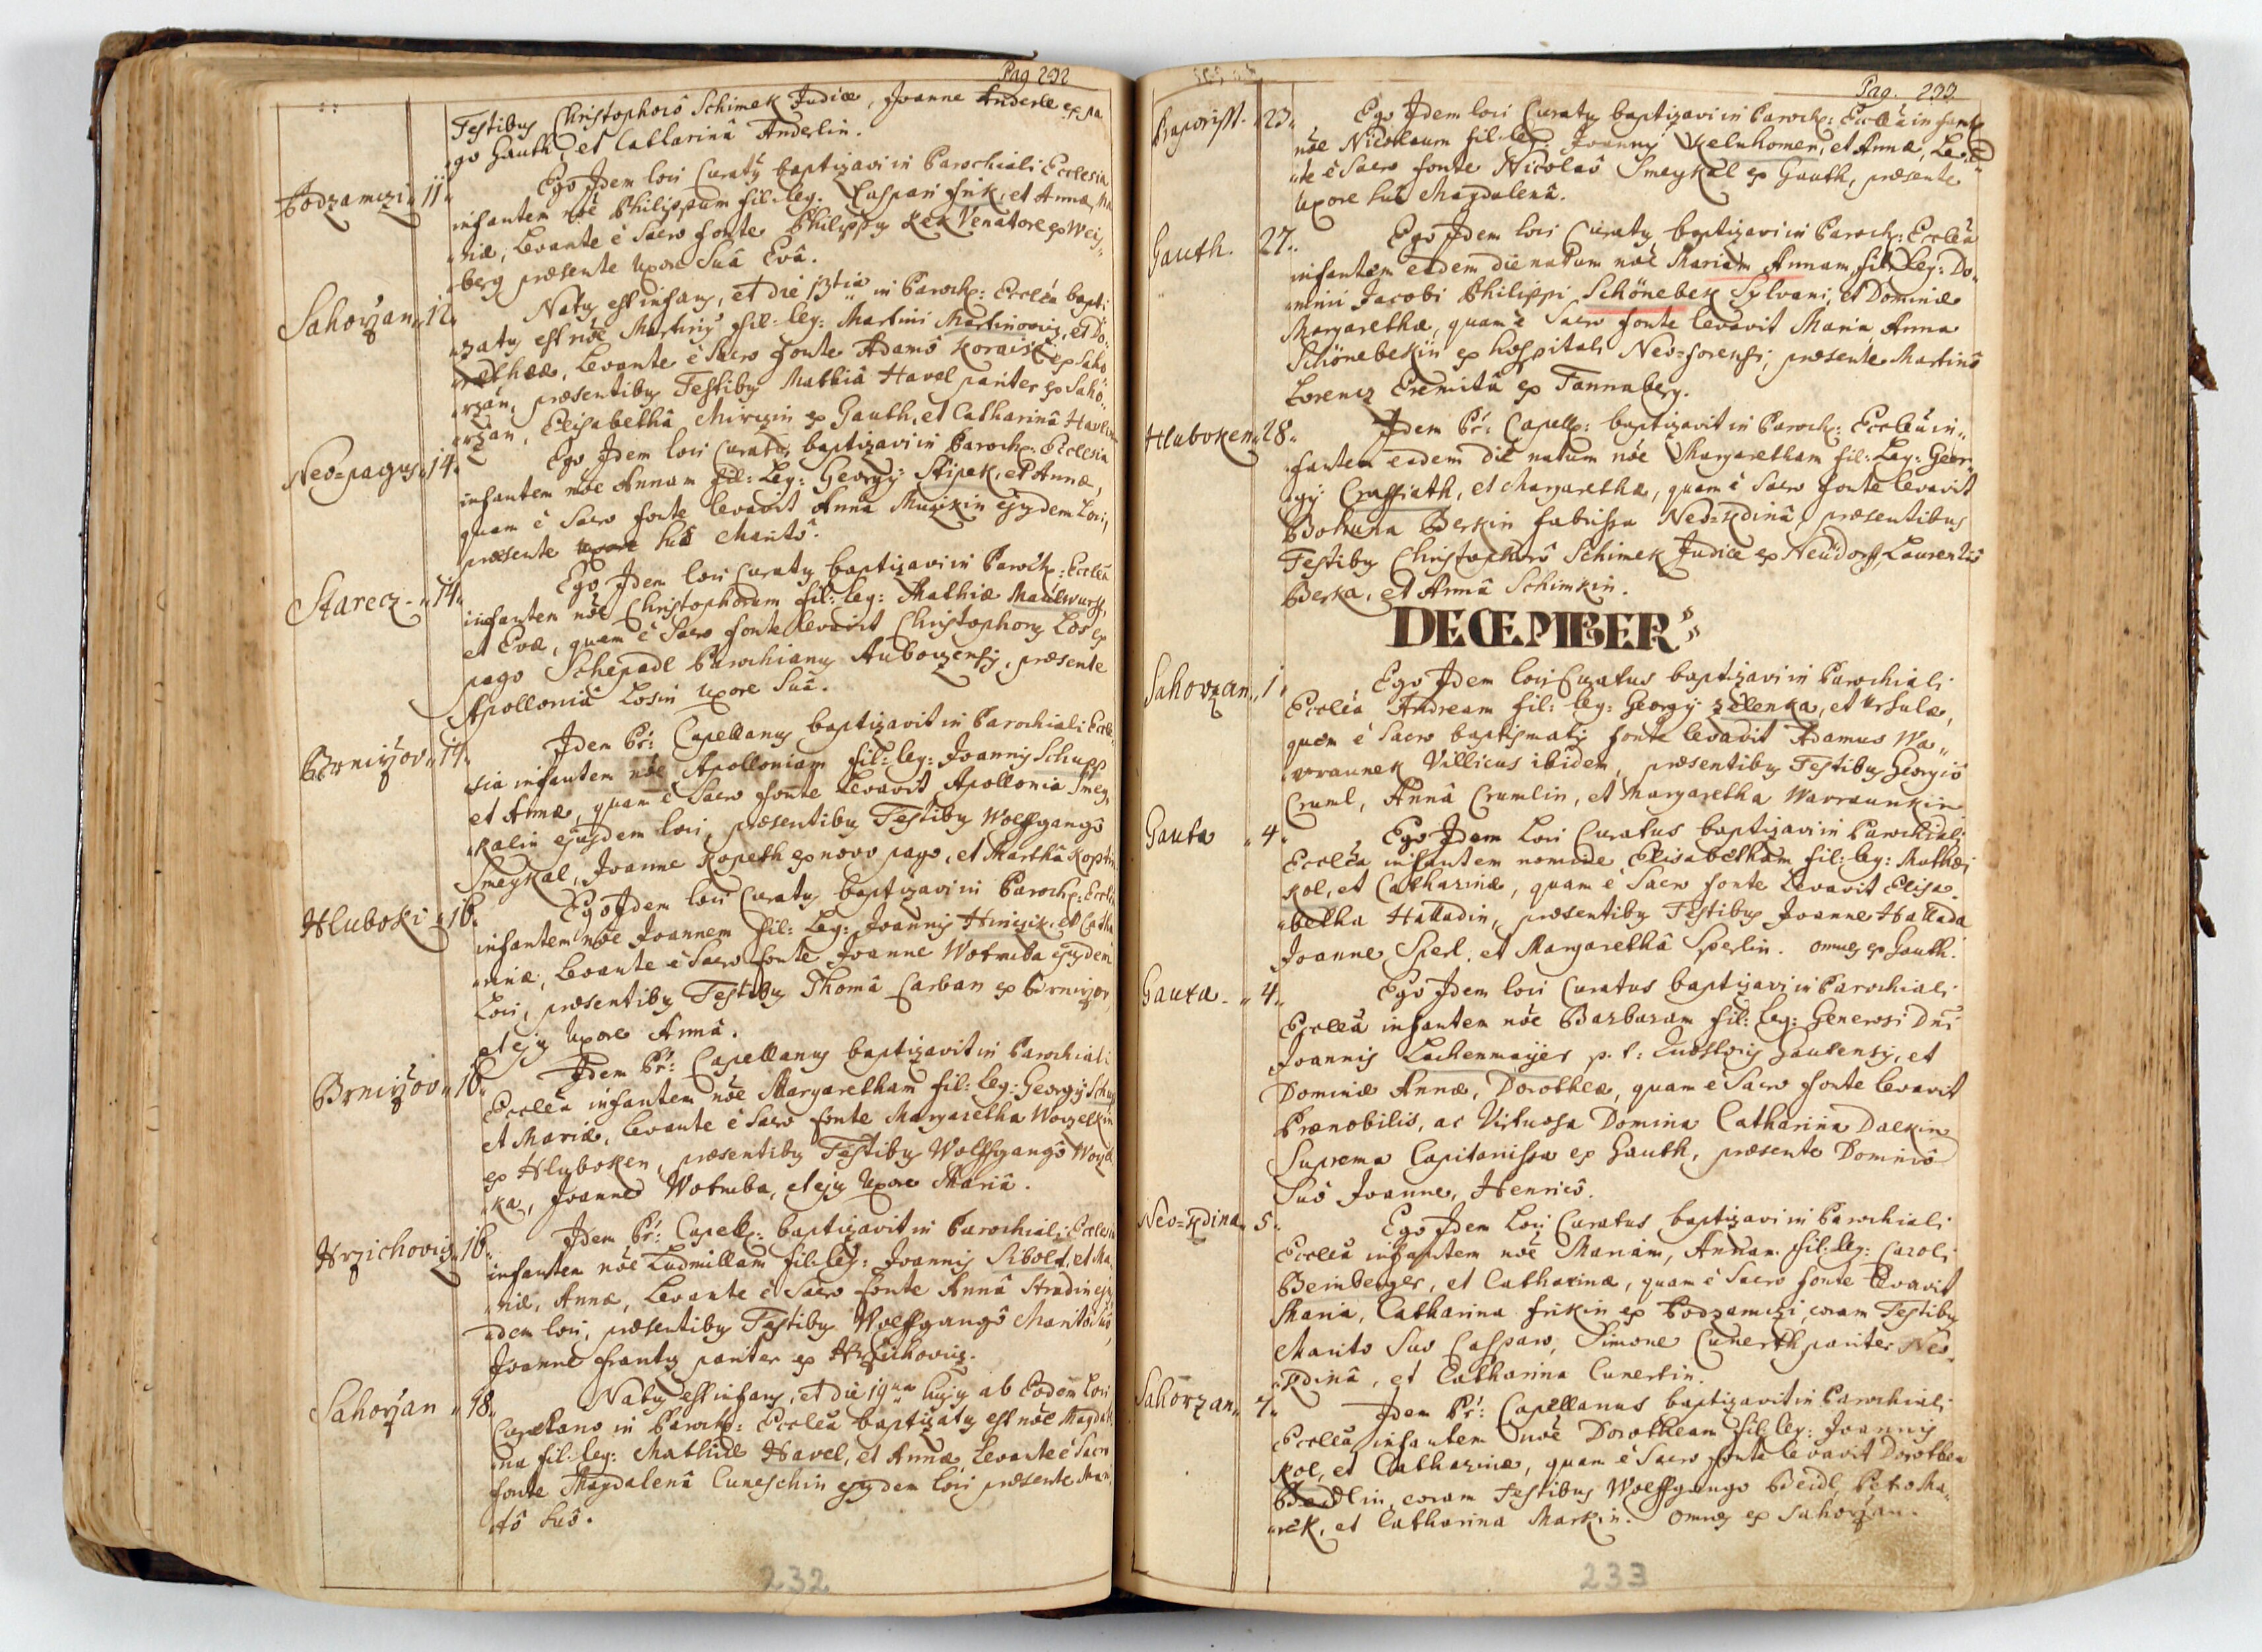 Pag 232
Testibus Christophorô Schimek Judice, Joanne Anderle ex pa
go Gauth, et Catharinâ Anderlin.
Podzamczi 11 Ego Idem loci Curatus baptizavi in Parochiali Ecclesia
infantem nôe Philippum fil: leg: Caspari Frik, et Annæ Ma
riæ, Levante è Sacro fonte Philippus Rek Venatore ex Weis
berg præsente Uxore Suâ Evâ.
Sahorzan 12 Natus est infans, et die 13tia in Paroch: Ecclêa bapti
zatus est nôe Martinus fil: leg: Martini Martinowiz, et Do
rothææ, Levante è Sacro fonte Adamô Koraisk ex Saho
rzan, præsentibus Testibus Mathiâ Havel pariter ex Saho
rzan, Elisabethâ ex Gauth, et Catharinâ
Neo=pagus 14 Ego Idem loci Curatus baptizavi in Paroch: Ecclesia
infantem nôe Annam fil: Leg: Georgÿ Stipek, et Annæ,
quam è Sacro fonte levavit Anna Muzikin ejusdem Loci,
præsente Suô Maritô.
Starecz 14 Ego Idem loci Curatus baptizavi in Paroch: Ecclêa
infantem nôe Christophorum fil: leg: Mathiæ Maulwurff,
et Evæ, quem è Sacro fonte levavit Christophorus Los ex
pago Schepadl Parochianus Auboczensis, præsente
Apolloniâ Losin Uxore Suâ.
Brnirzov 14 Idem Pr: Capellanus baptizavit in Parochiali Eccle
sia infantem nôe Apolloniam fil: leg: Joannis Schupp
et Annæ, quam è Sacro fonte Levavit Apollonia Smey
kalin ejusdem loci, præsentibus Testibus Wolffgangô
Smeykal, Joanne Kopeth ex novo pago, et Marthâ
Hluboki 16 Ego Idem loci Curatus baptizavi in Paroch: Ecclêa
infantem nôe Joannem fil: Leg: Joannis Hinizik, et Catha
rinæ, Levante è Sacro fonte Joanne Wotruba ejusdem
Loci, præsentibus Testibus Thomâ Carban ex Brnirzov
et ejus Uxore Annâ.
Brnirzov 16 Idem Pr: Capellanus baptizavit in Parochiali
Ecclêa infantem nôe Margaretham fil: Leg: Georgÿ
et Mariæ, levante è Sacro fonte Margaretha Woyzelkin
ex Hluboken, præsentibus Testibus Wolffgangô Woyzel
ka, Joanne Wotruba, et ejus Uxore Mariâ.
Hrzichoviz 16 Idem Pr: Capell: baptizavit in Parochiali Ecclesia
infantem nôe Ludmillam fil: leg: Joannis Sibold, et Ma
riæ, Annæ, Levante è Sacro fonte Annâ Stradin ejus
dem loci, præsentibus Testibus Wolffgangô Maritô Suô,
Joanne Frantz pariter ex Hrzichoviz.
Sahorzan 18 Natus est infans, et die 19na hujus ab Eodem Loci
Capellano in Paroch: Ecclêa baptizatus est nôe Magdale
na fil: leg: Mathiæ Havel, et Annæ, Levante è Sacro
fonte Magdalenâ Cuneschin ejusdem loci præsente Mari
tô Suô.
232
Pag. 233
23 Ego Idem loci Curatus baptizavi in Paroch: Ecclêa infante
nôe Nicolaum fil: leg: Joannis Welnhomer, et Annæ, Lev
te è Sacro fonte Nicolaô Smeykal ex Gauth, præsente
Uxore Suâ Magdalenâ.
Gauth. 27 Ego Idem loci Curatus baptizavi in Paroch: Ecclêa
infantem eadem die natam nôe Mariam Annam fil: Leg: Do
mini Jacobi Philippi Schönebek Sylvani, et Dominæ
Margarethæ, quam è Sacro fonte levavit Maria Anna
Schönebekin ex hospitali Neo=forensi, præsente Martinô
Lorencz Eremitâ ex Tannaberg.
Hluboken 28 Idem Pr: Capell: baptizavit in Paroch: Ecclêa in
fantem eadem die natum nôe Margaretham fil: Leg: Geor
gÿ Craffiath, et Margarethæ, quam è Sacro fonte levavit
Bohuna Berkin fabrissa Neo=Kdinâ, præsentibus
Testibus Christophorô Schimek Judice ex Neudorff, Laurentiô
Berka, et Annâ Schimkin.
DECEMBER
Sahorzan 1 Ego Idem loci Curatus baptizavi in Parochiali
Ecclêa Andream fil: leg: Georgÿ Zelenka, et Ursulæ,
quem è Sacro baptismatis fonte levavit Adamus Wa
wraunek Villicus ibidem, præsentibus Testibus Georgiô
Cruml, Annâ Crumlin, et Margaretha Wavraunkin
Gauta 4 Ego Idem Loci Curatus baptizavi in Parochiali
Ecclêa infantem nomine Elisabetham fil: leg: Mathæi
Kol, et Catharinæ, quam è Sacro fonte Levavit Elisa
betha Halladin, præsentibus Testibus Joanne Hallada
Joanne Sperl, et Margarethâ Sperlin. omnes ex Gauth.
Gauta 4 Ego Idem loci Curatus baptizavi in Parochiali
Ecclêa infantem nôe Barbaram fil: leg: Generosi Dni
Joannis Lachenmayer p. t: Gautensis, et
Dominæ Annæ, Dorotheæ, quam è Sacro fonte levavit
Prænobilis, ac Virtuosa Domina Catharina Daekin
Suprema Capitanissa ex Gauth, præsente Dominô
Suô Joanne, Henricô.
Neo=Kdina 5 Ego Idem Loci Curatus baptizavi in Parochiali
Ecclêa infantem nôe Mariam, Annam fil: leg: Caroli
Beinberger, et Catharinæ, quam è Sacro fonte levavit
Maria, Catharina Frikin ex Podzamczi, coram Testibus
Marito Suo Casparo, Simone Cunerth pariter Neo
Kdinâ, et Catharina Cunertin.
Sahorzan 7 Idem Pr: Capellanus baptizavit in Parochiali
Ecclêa infantem nôe Dorotheam fil: leg: Joannis
Kol, et Catharinæ, quam è Sacro fonte levavit Dorothea
Beidlin, coram Testibus Wolffgango Beidl, Petro Ma
rek, et Catharina Markin. omnes ex Sahorzan.
233